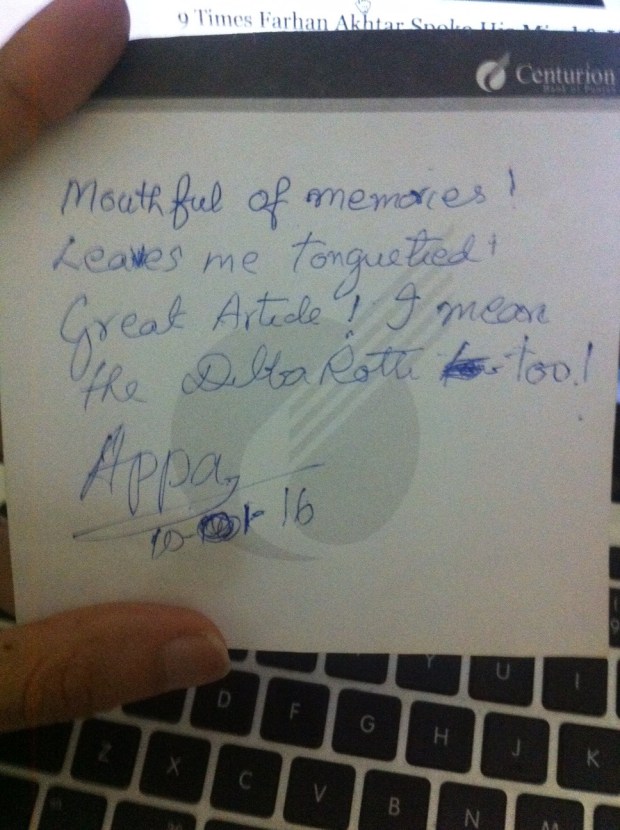 9 Times Farhan Akhtar Spoke His Mind
Centurion
Bank of Punjab
Mouthful of memories!
Leaves me tonguetied!
Great Article! I mean
the Dibba Rotti too!
Appa
10-01-16
Y U I
D F G H J K
Z X C V B N M